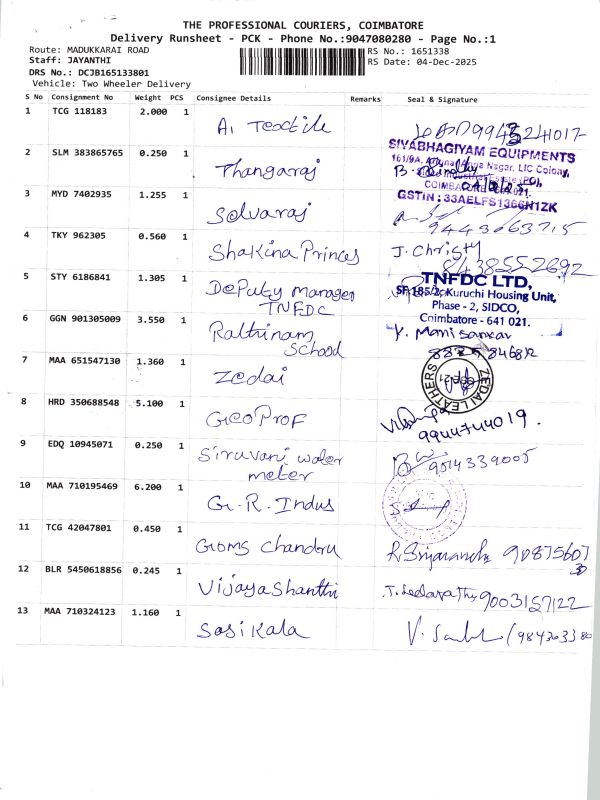 THE PROFESSIONAL COURIERS, COIMBATORE
Delivery Runsheet - PCK - Phone No.:9047080280 - Page No.:1
Route: MADUKKARAI ROAD
RS No.: 1651338
Staff: JAYANTHI
RS Date: 04-Dec-2025
DRS No.: DCJB165133801
Vehicle: Two Wheeler Delivery
S No Consignment No Weight PCS Consignee Details Remarks Seal & Signature
1 TCG 118183 2.000 1
A1 Textile
2 SLM 383865765 0.250 1
Thangaraj
SIVABHAGIYAM EQUIPMENTS
GSTIN : 33AELFS1366H1ZK
3 MYD 7402935 1.255 1
Selvaraj
9443663715
4 TKY 962305 0.560 1
Shakina Princes J. Christy
8438552692
5 STY 6186841 1.305 1
Deputy Manager
TNFDC
TNFDC LTD,
SF.185/2, Kuruchi Housing Unit,
Phase - 2, SIDCO,
Coimbatore - 641 021.
6 GGN 901305009 3.550 1
Rathinam
School
K. Manisankar
7 MAA 651547130 1.360 1
Zedai
ZEDAI LEATHERS
8 HRD 350688548 5.100 1
GeoProf
9944744019.
9 EDQ 10945071 0.250 1
Siruvani water
meter
9014339005
10 MAA 710195469 6.200 1
G.R. Indus
11 TCG 42047801 0.450 1
Goms Chandru
12 BLR 5450618856 0.245 1
Vijayashanthi
9003157122
13 MAA 710324123 1.160 1
Sasikala